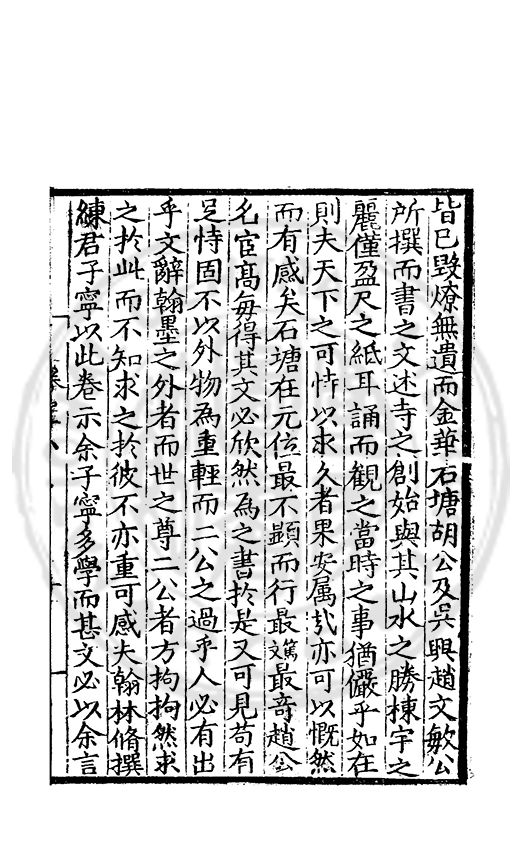 皆已毀燎無遺而金華石塘胡公及吳興趙文敏公
所撰而書之文述寺之創始與其山水之勝棟宇之
麗僅盈尺之紙耳誦而觀之當時之事猶儼乎如在
則夫天下之可恃以求久者果安属㢤亦可以慨然
而有感矣石塘在元位最不顕而行最篤最竒趙公
名宦髙每得其文必欣然為之書扵是又可見苟有
足恃固不以外物為重輕而二公之過乎人必有出
乎文辭翰墨之外者而世之尊二公者方拘拘然求
之扵此而不知求之扵彼不亦重可感夫翰林脩撰
練君子寧以此卷示余子寧多學而甚文必以余言